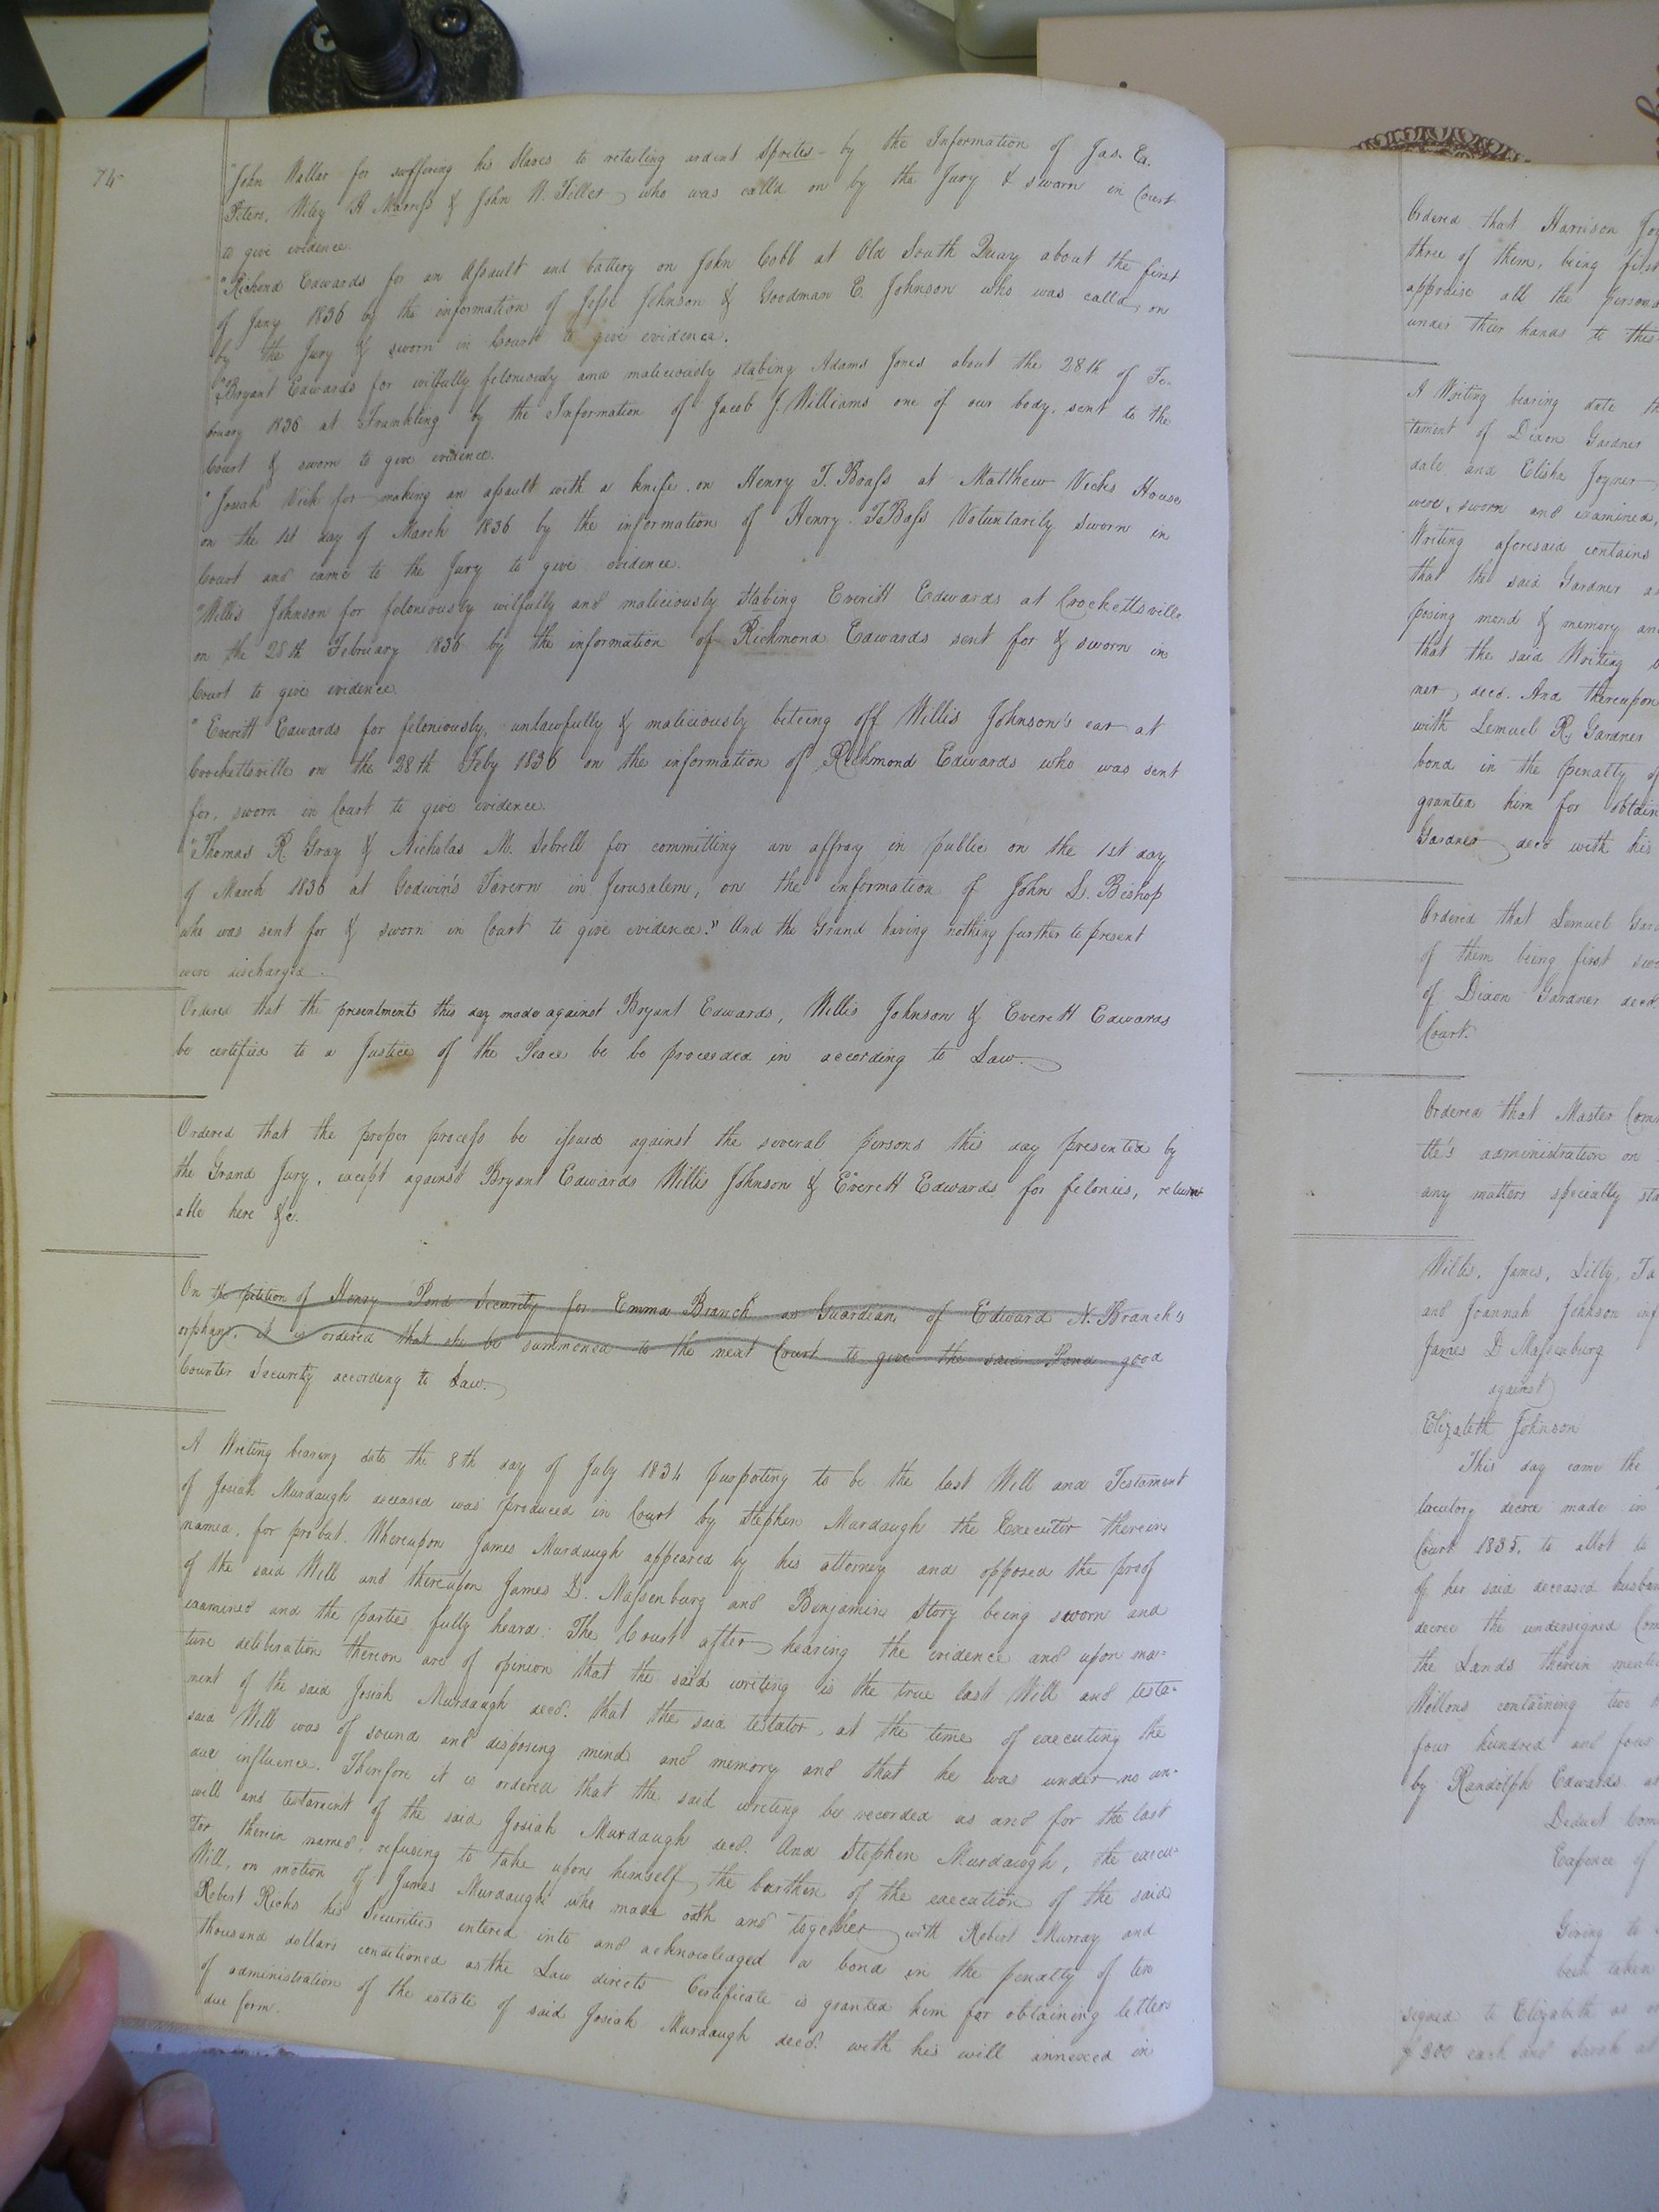 74
"John Wallar for suffering his Slaves to retailing ardent Sprites - by the Information of Jas. Ed.
Peters, Wiley H Marriss & John W. Tiller who was calld on by the Jury & sworn in Court
to give evidence.
"Richond Edwards for an Assault and battery on John Cobb at Old South Quay about the first
of Jany 1836 by the information of Jesse Johnson & Goodman E. Johnson who was calld on
by the Jury & sworn in Court to give evidence.
"Bryant Edwards for wilfully feloniously and maliciously stabing Adams Jones about the 28th of Fe-
bruary 1836 at Frankling by the Information of Jacob J. Williams one of our body, sent to the
Court & sworn to give evidence.
"Josiah Vick for making an assault with a knife on Henry T. Boass at Matthew Vicks House
on the 1st day of March 1836 by the information of Henry T. Bass Voluntarily sworn in
Court and came to the Jury to give evidence.
"Willis Johnson for feloniously wilfully and maliciously stabing Everitt Edwards at Crockettsville
on the 28th February 1836 by the information of Richmond Edwards sent for & sworn in
Court to give evidence.
"Everitt Edwards for feloniously, unlawfully & maliciously biteing off Willis Johnson's ear at
Crockettsville on the 28th Feby 1836 on the information of Richmond Edwards who was sent
for, sworn in Court to give evidence.
"Thomas R Gray & Nicholas M. Sebrell for committing an affray in public on the 1st day
of March 1836 at Godwin's Tavern in Jerusalem, on the information of John D. Bishop
who was sent for & sworn in Court to give evidence." And the Grand having nothing further to present
were discharged.
Ordered that the presentments this day made against Bryant Edwards, Willis Johnson & Everett Edwards
be certified to a Justice of the Peace be be proceeded in according to Law.
Ordered that the proper process be issued against the several persons this day presented by
the Grand Jury, except against Bryant Edwards Willis Johnson & Everett Edwards for felonies, return
able here &c.
On the petition of Henry Pond Security for Emma Branch as Guardian of Edward N. Branch's
orphans, it is ordered that she be summoned to the next Court to give the said Pond good
Counter Security according to Law.
A Writing bearing date the 8th day of July 1834 purpoting to be the last Will and Testament
of Josiah Murdaugh deceased was produced in Court by Stephen Murdaugh the Executor therein
named, for probat. Whereupon James Murdaugh appeared by his attorney and opposed the proof
of the said Will and thereupon James D. Massenburg and Benjamin Story being sworn and
examined and the parties fully heard: The Court after hearing the evidence and upon ma=
ture deliberation thereon are of opinion that the said writing is the true last Will and testa-
ment of the said Josiah Murdaugh decd. that the said testator, at the time of executing the
said Will was of sound and disposing mind and memory and that he was under no un-
due influence. Therefore it is ordered that the said writing be recorded as and for the last
will and testament of the said Josiah Murdaugh decd. And Stephen Murdaugh, the execu-
tor therein named, refusing to take upon himself the burthen of the execution of the said
Will, on motion of James Murdaugh who made oath and together with Robert Murray and
Robert Ricks his Securities entered into and acknowledged a bond in the penalty of ten
thousand dollars conditioned as the Law directs Certificate is granted him for obtaining letters
of administration of the estate of said Josiah Murdaugh decd. with his will annexed in
due form.
Ordered that Harrison
three of them, being first
appraise all the
under their hands to this
A Writing bearing date
tament of Dixon Gardner
dale and Elisha Joyner
were, sworn and examined,
Writing aforesaid contains
that the said Gardner
posing mend & memory
that the said Writing
ner decd. And thereupon
with Lemuel R. Gardner
bond in the penalty of
granted him for
Gardner decd with his
Ordered that Lemuel
of them being first
of Dixon Gardner decd
Court.
Ordered that Master
tle's administration on
any matters specially
Willis, James, Lilly,
and Joannah Johnson
James D Massenburg
against
Elizabeth Johnson
This day came the
locutory decree made in
Court 1835, to allot to
of her said deceased
decree the undersigned
the Lands therein
containing two
four hundred and four
by Randolph Edwards
Deduct
Expence of
Giving to
been taken
signed to Elizabeth as
$200 each and Sarah